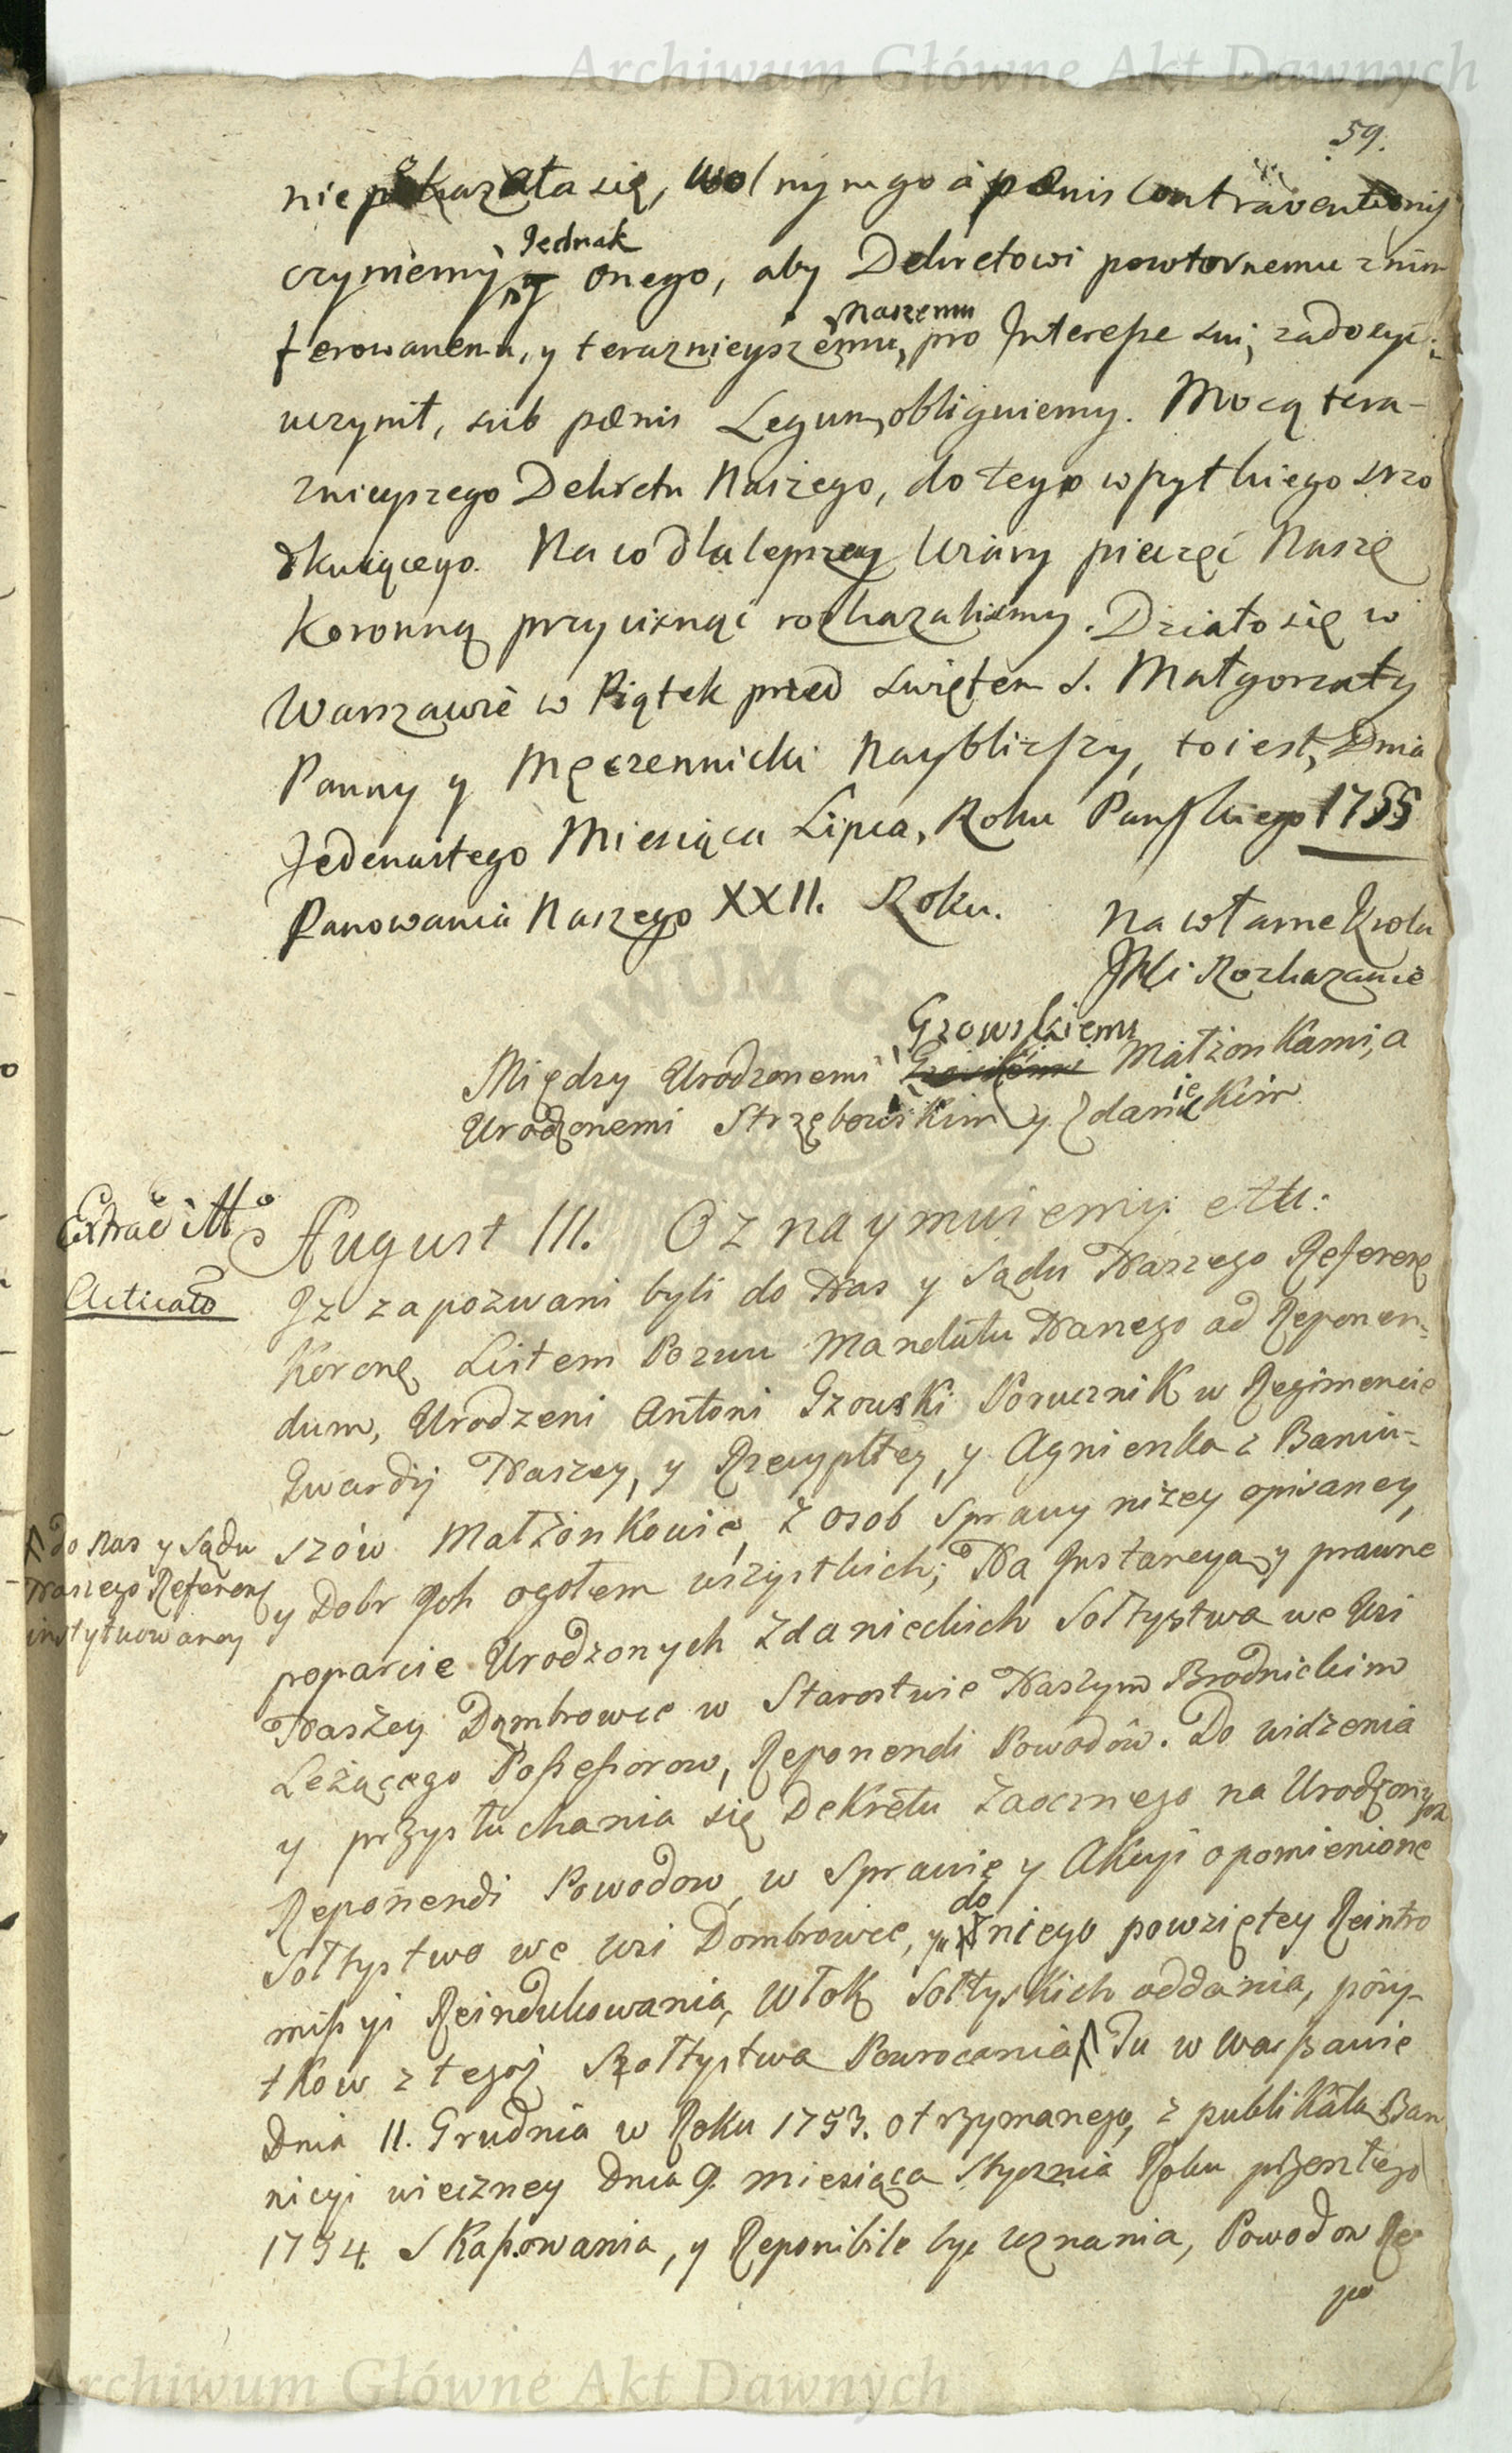 Archiwum Główne Akt Dawnych
59.
nie pokazała się, wolnym go a pœnis Contraventionis
czyniemy, Jednak onego, aby Dekretowi powtornemu z nim
ferowanemu, y teraznieyszemu Naszemu, pro Interesse sui, zadosyc
uczynił, sub pœnis Legum, obliguiemy. Mocą tera-
znieyszego Dekretu Naszego, do tego wszytkiego srzo
dkuiącego. Na co dla lepszey Wiary pieczęć Naszę
Koronną przycisnąć rozkazalismy. Działo się w
Warszawie w Piątek przed swiętem S. Małgorzaty
Panny y Męczennicki Nayblizszy, to iest, Dnia
Jedenastego Miesiąca Lipca, Roku Panskiego 1755
Panowania Naszego XXII. Roku.
Na własne Krola
JMci Rozkazanie
Między Urodzonemi Gzowskiemi Małżonkami, a
Urodzonemi Strzębowskim y Zdanieckim
Extrad itto
Acticato
August III. Oznaymuiemy etc:
Iz zapozwani byli do Nas y Sądu Naszego Referen
Koronę Listem Pozwu Mandatu Naszego ad Reponen-
dum, Urodzeni Antoni Gzowski Porucznik w Regimencie
Gwardij Naszey, y Rzecypltey, y Agnieszka z Baniu-
szów Małżonkowie, z osob Sprawy niżey opisaney,
y Dobr Ich ogołem wszystkich; Na Instancyą y prawne
do Nas y Sądu
Naszego Referen
instytuowaney
poparcie Urodzonych Zdanieckich Sołtystwa we Wsi
Naszey Dąmbrowce w Starostwie Naszym Brodnickim
Leżącego Possessorow, Reponendi Powodów. Do widzenia
y przysłuchania się Dekretu Zaocznego na Urodzonych
Reponendi Powodow, w Sprawie y Akcyi o pomienione
Sołtystwo we wsi Dombrowce, y do niego powziętey Reintro
missyi Reindukowania, Włok Sołtyskich oddania, pozy-
tkow z tegoż Szołtystwa Powrocenia Tu w Warszawie
Dnia 11. Grudnia w Roku 1753. otrzymanego, z publikatą Ban
nicyi wieczney Dnia 9. miesiąca Stycznia Roku przeszłego
1754. Skassowania, y Reponibile być uznania, Powodow Re
po
Archiwum Główne Akt Dawnych